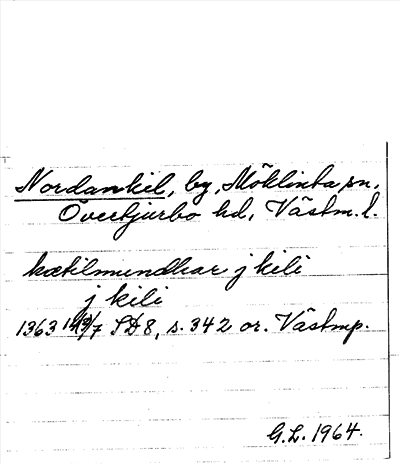 Nordankil, by, Möklinta sn,
Övertjurbo hd, Västm. l.
kætilmundhar j kili
j kili
1363 /7 SD 8, s. 342 or. Västmp.
G.L. 1964.